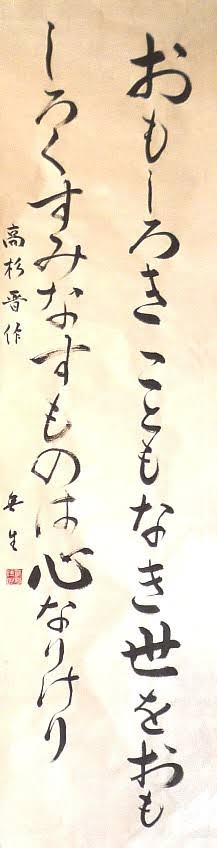 おもしろきこともなき世をおも
しろくすみなすものは心なりけり
高杉晋作